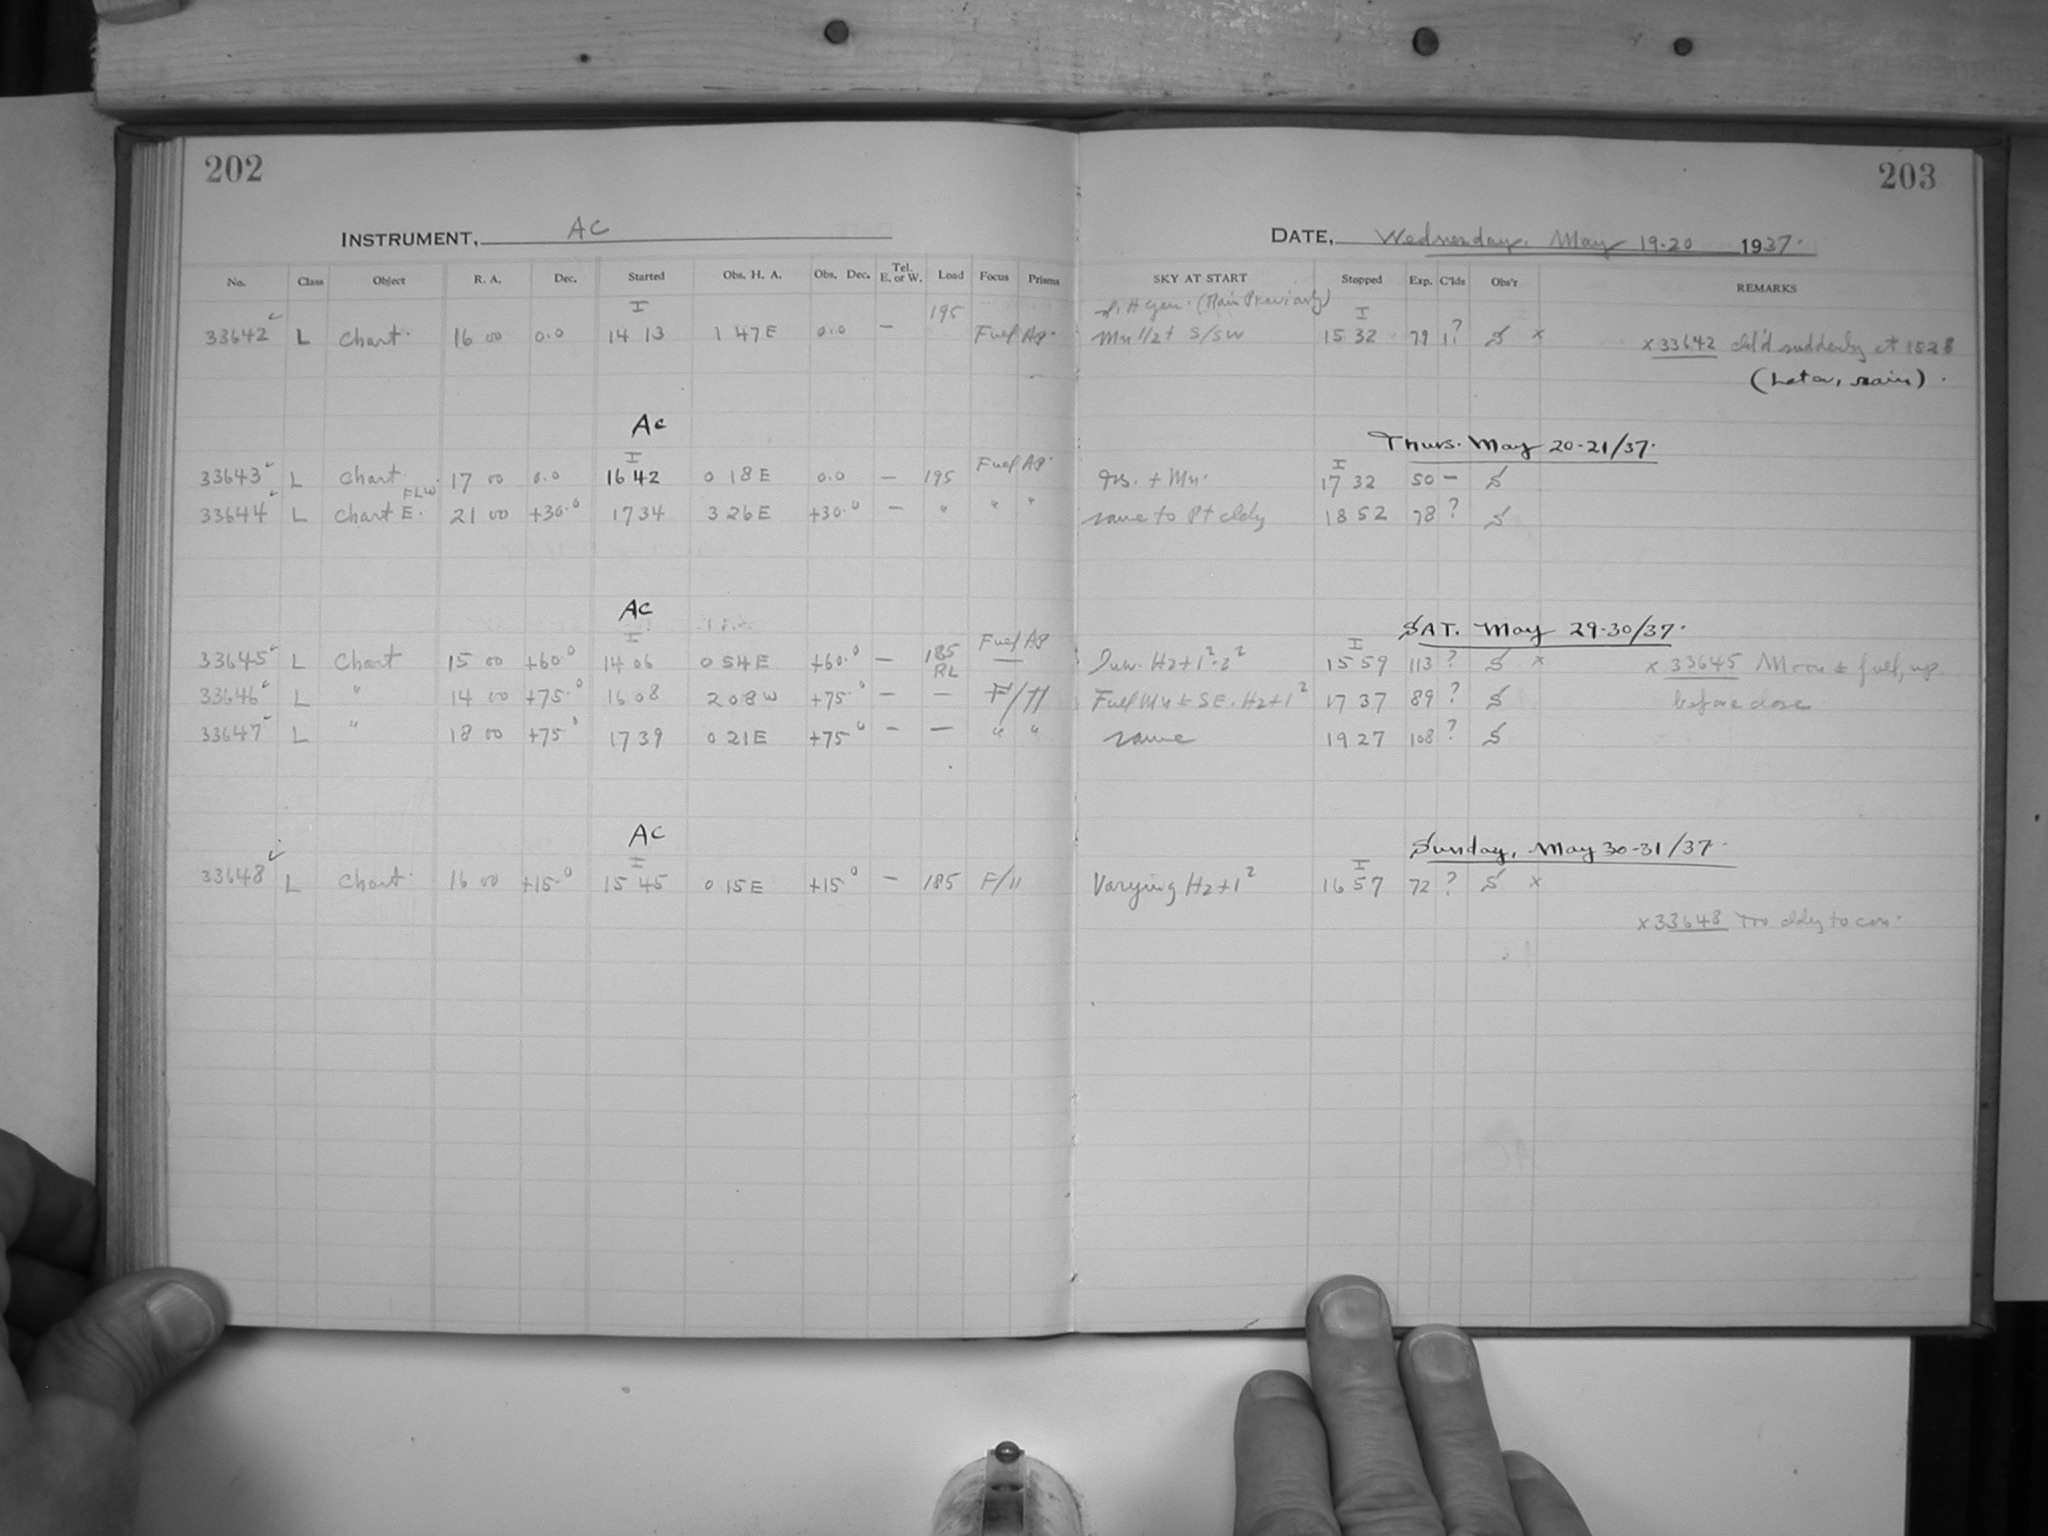 202
203
INSTRUMENT, AC
DATE, Wednesday, May 19-20 1937.
No. Class Object R. A. Dec. Started Obs. H. A. Obs. Dec. Tel. E. or W. Load Focus Prisms SKY AT START Stopped Exp. C'lds Obs'r REMARKS
I 195 (Rain Previously) I
33642 L Chart. 16 00 0.0 14 13 1 47 E 0.0 — Full Ap. Mn 1/2+ S/SW 15 32 79 1? S x x 33642 cld'd suddenly at 1528
(Later, rain).
AC Thurs. May 20-21/37.
I Full Ap. I
33643 L Chart. 17 00 0.0 16 42 0 18 E 0.0 — 195 + Mn. 17 32 50 — S
33644 L Chart E. FLW. 21 00 +30.0 17 34 3 26 E +30.0 — " " " same to Pt cldy 18 52 78 ? S
AC SAT. May 29-30/37.
I Full Ap I
33645 L Chart 15 00 +60.0 14 06 0 54 E +60.0 — 185 RL — Hz+1²-2² 15 59 113 ? S x x 33645 Moon ± full, up
33646 L " 14 00 +75.0 16 08 2 08 W +75.0 — — F/11 Full Mn ± SE. Hz+1² 17 37 89 ? S before close
33647 L " 18 00 +75° 17 39 0 21 E +75° — — " " same 19 27 108 ? S
AC Sunday, May 30-31/37.
I I
33648 L Chart. 16 00 +15.0 15 45 0 15 E +15° — 185 F/11 Varying Hz+1² 16 57 72 ? S x
x 33648 Too cldy to con.